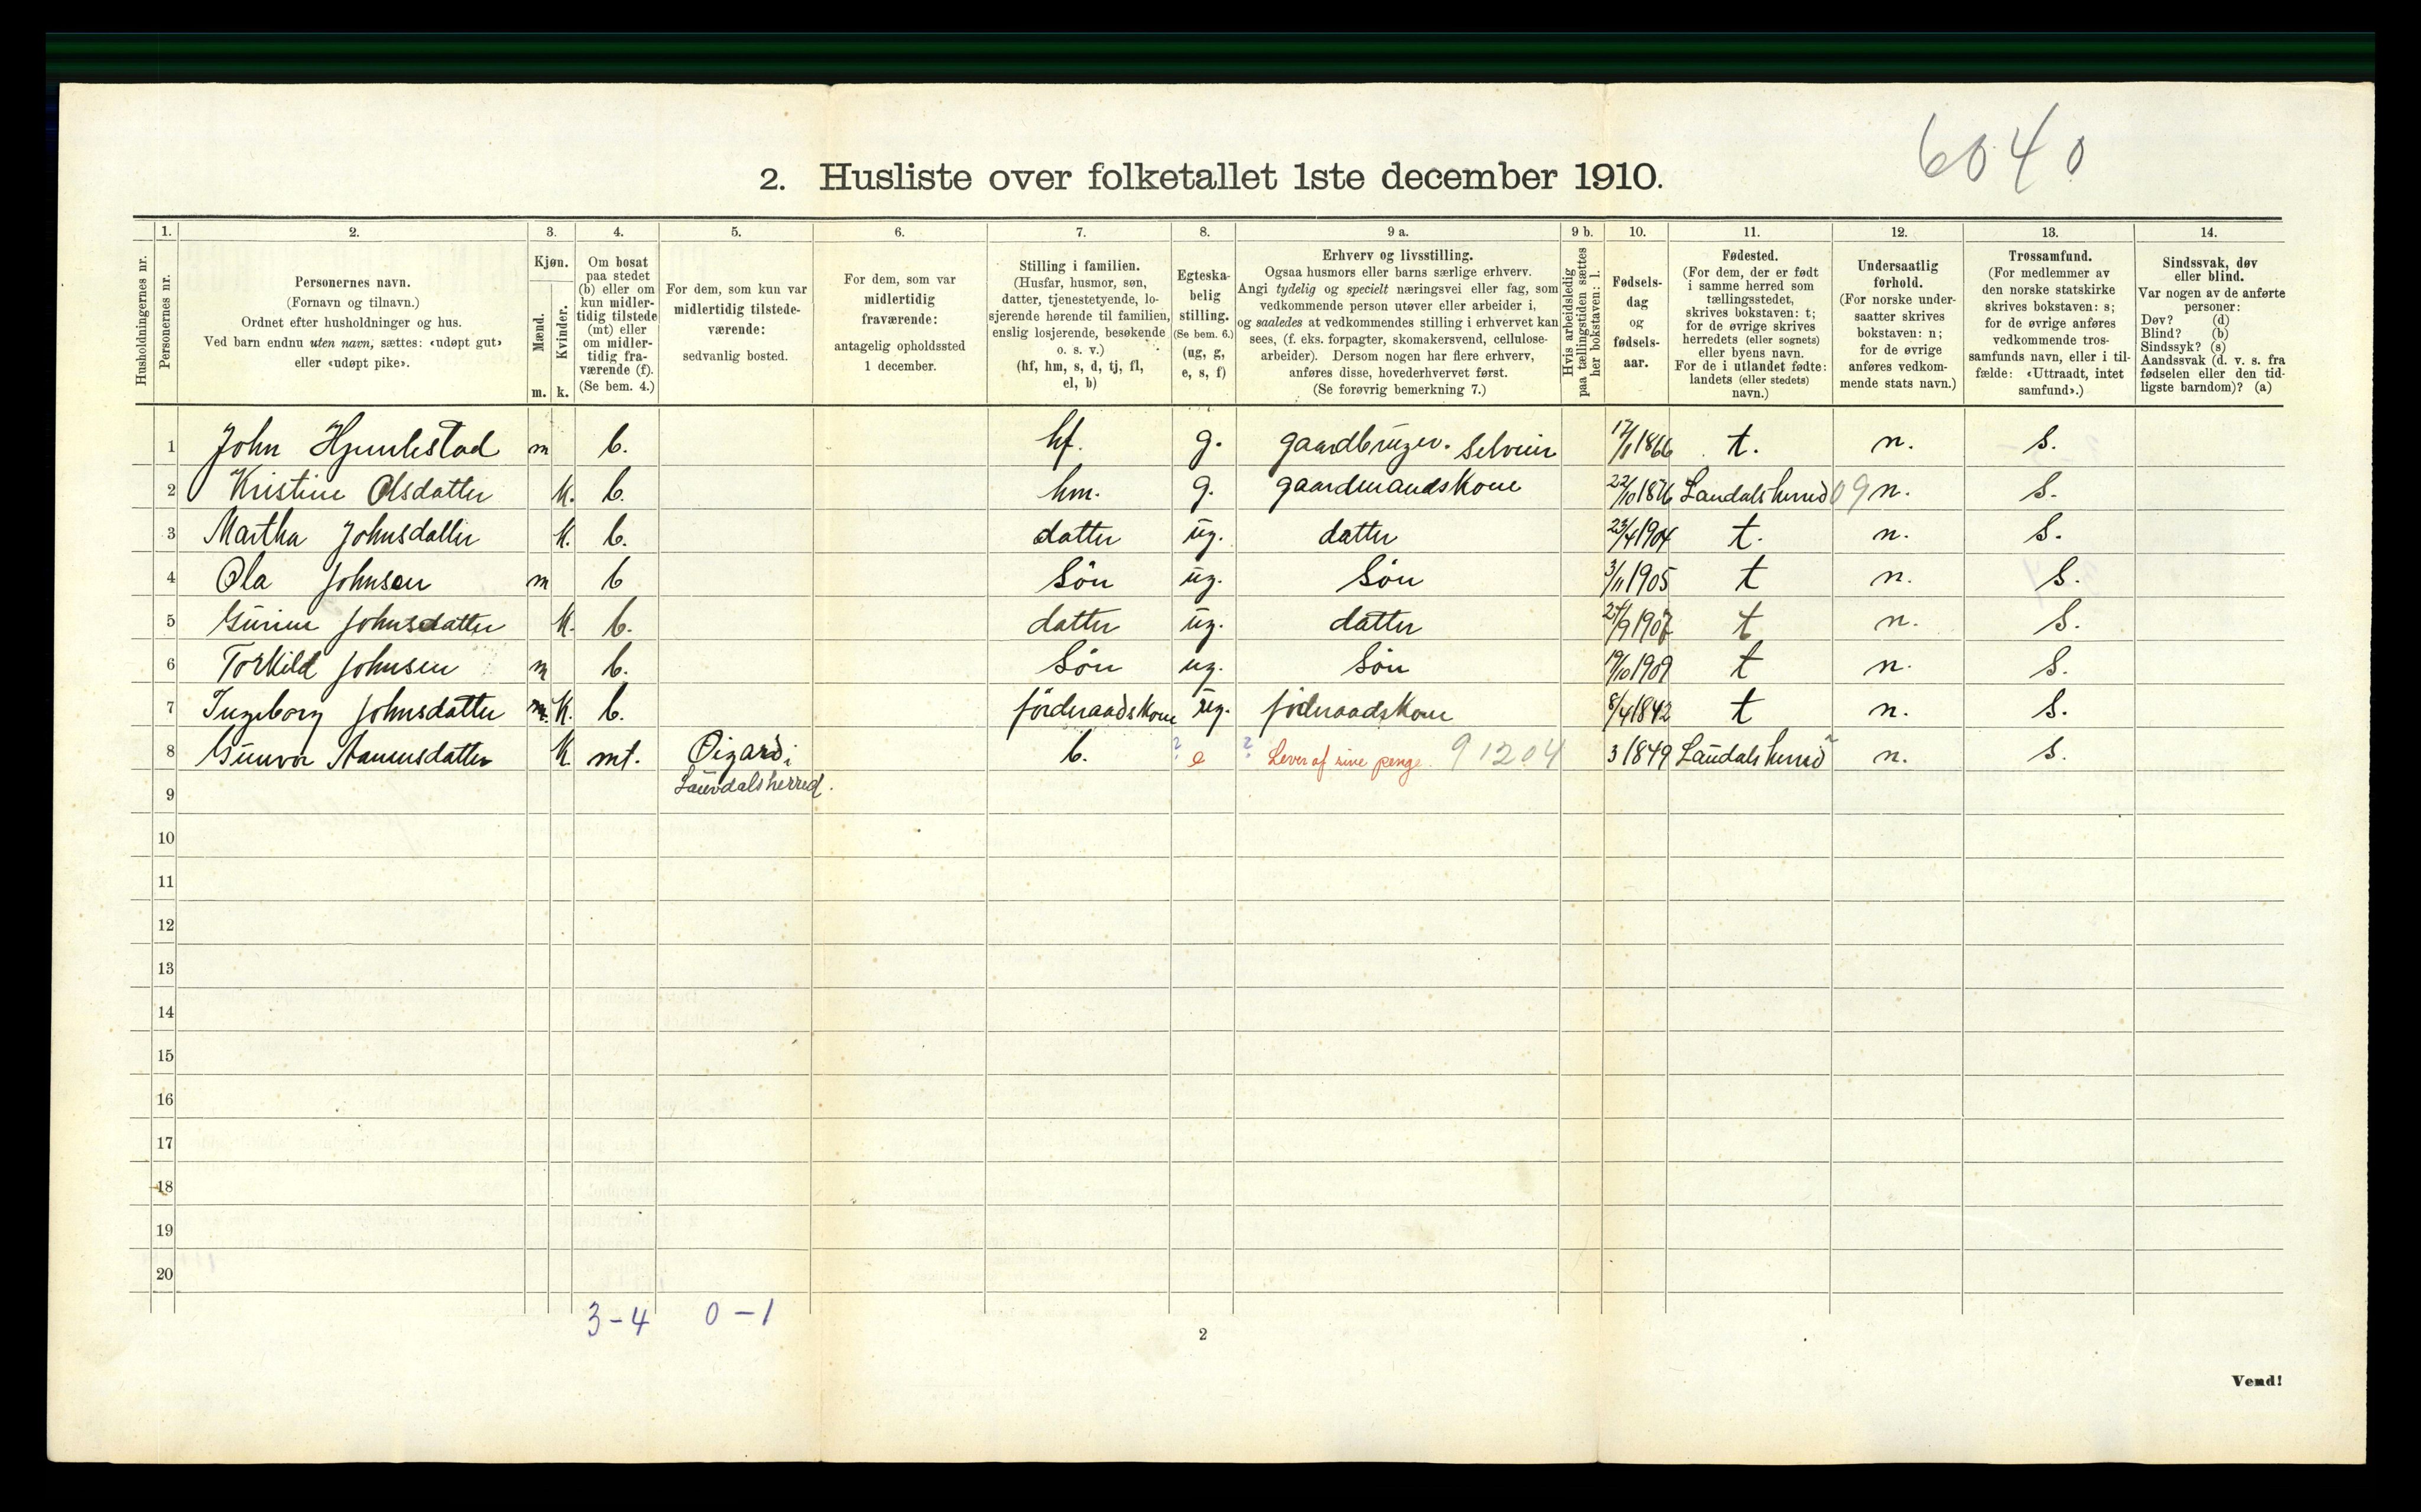 6040
2. Husliste over folketallet 1ste december 1910.
Husholdningernes nr.
1.
Personernes nr.
2.
Personernes navn.
(Fornavn og tilnavn.)
Ordnet efter husholdninger og hus.
Ved barn endnu uten navn, sættes: «udøpt gut»
eller «udøpt pike».
3.
Kjøn.
Mænd.
Kvinder.
m. k.
4.
Om bosat
paa stedet
(b) eller om
kun midler-
tidig tilstede
(mt) eller
om midler-
tidig fra-
værende (f).
(Se bem. 4.)
5.
For dem, som kun var
midlertidig tilstede-
værende:
sedvanlig bosted.
6.
For dem, som var
midlertidig
fraværende:
antagelig opholdssted
1 december.
7.
Stilling i familien.
(Husfar, husmor, søn,
datter, tjenestetyende, lo-
sjerende hørende til familien,
enslig losjerende, besøkende
o. s. v.)
(hf, hm, s, d, tj, fl,
el, b)
8.
Egteska-
belig
stilling.
(Se bem. 6.)
(ug, g,
e, s, f)
9 a.
Erhverv og livsstilling.
Ogsaa husmors eller barns særlige erhverv.
Angi tydelig og specielt næringsvei eller fag, som
vedkommende person utøver eller arbeider i,
og saaledes at vedkommendes stilling i erhvervet kan
sees, (f. eks. forpagter, skomakersvend, cellulose-
arbeider). Dersom nogen har flere erhverv,
anføres disse, hovederhvervet først.
(Se forøvrig bemerkning 7.)
9 b.
Hvis arbeidsledig
paa tællingstiden sættes
her bokstaven: l.
10.
Fødsels-
dag
og
fødsels-
aar.
11.
Fødested.
(For dem, der er født
i samme herred som
tællingsstedet,
skrives bokstaven: t;
for de øvrige skrives
herredets (eller sognets)
eller byens navn.
For de i utlandet fødte:
landets (eller stedets)
navn.)
12.
Undersaatlig
forhold.
(For norske under-
saatter skrives
bokstaven: n;
for de øvrige
anføres vedkom-
mende stats navn.)
13.
Trossamfund.
(For medlemmer av
den norske statskirke
skrives bokstaven: s;
for de øvrige anføres
vedkommende tros-
samfunds navn, eller i til-
fælde: «Uttraadt, intet
samfund».)
14.
Sindssvak, døv
eller blind.
Var nogen av de anførte
personer:
Døv? (d)
Blind? (b)
Sindssyk? (s)
Aandssvak (d. v. s. fra
fødselen eller den tid-
ligste barndom)? (a)
1 John m b. hf. g. gaardbruger. Selveier 1866 t. n. s.
2 Kristine Olsdatter K. b. hm. g. gaardmandskone 22/10 1876 Laudals herred 09 n. s.
3 Martha Johnsdatter K. b. datter ug. datter 23/4 1904 t. n. s.
4 Ola Johnsen m b Søn ug. Søn 3/11 1905 t n. s.
5 Johnsdatter K. b. datter ug. datter 1907 t n. s.
6 Torkild Johnsen m b. Søn ug. Søn 19/10 1909 t n. s.
7 Ingeborg Johnsdatter m. K. b. föderaadskone ug. föderaadskone 8/4 1842 t n. s.
8 Gunvor K. mt. Øigard i b. ? e ? Lever af sine penge. 91204 3 1849 Laudals herred n. s.
9 Lauvdalsherred.
10
11
12
13
14
15
16
17
18
19
20
3-4 0-1
2
Vend!